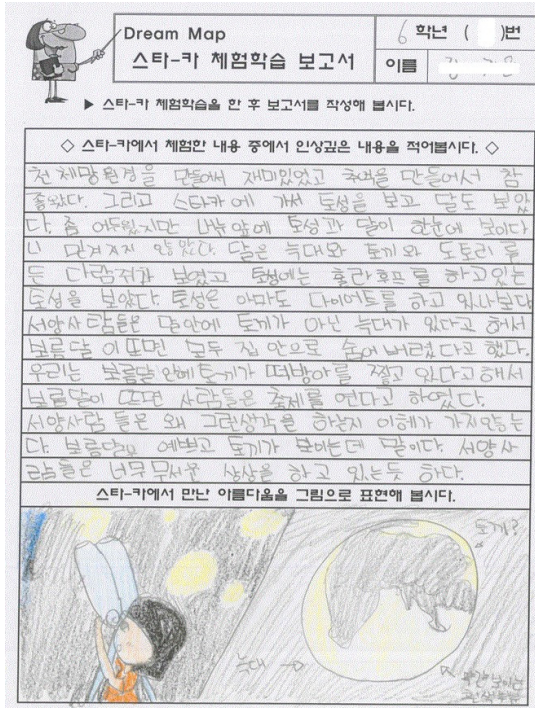 Dream Map
6 학년 ( )번
스타-카 체험학습 보고서
이름
▶ 스타-카 체험학습을 한 후 보고서를 작성해 봅시다.
◇ 스타-카에서 체험한 내용 중에서 인상깊은 내용을 적어봅시다. ◇
천체망원경을 만들어서 재미있었고 추억을 만들어서 참
좋았다. 그리고 스타카에 가서 토성을 보고 달도 보았
다. 좀 어두웠지만 내눈앞에 토성과 달이 한눈에 보이다
니 믿겨지지 않았다. 달은 늑대와 토끼와 도토리를
든 다람쥐가 보였고 토성에는 훌라후프를 하고있는
토성을 보았다. 토성은 아마도 다이어트를 하고 있나보다
서양사람들은 달안에 토끼가 아닌 늑대가 있다고 해서
보름달이 뜨면 모두 집 안으로 숨어버렸다고 했다.
우리는 보름달안에 토끼가 떡방아를 찧고 있다고해서
보름달이 뜨면 사람들은 축제를 연다고 하였다.
서양사람들은 왜 그런생각을 하는지 이해가 가지않는
다. 보름달도 예쁘고 토끼가 보이는데 말이다. 서양사
람들은 너무 무서운 상상을 하고 있는듯 하다.
스타-카에서 만난 아름다움을 그림으로 표현해 봅시다.
토끼?
늑대 →